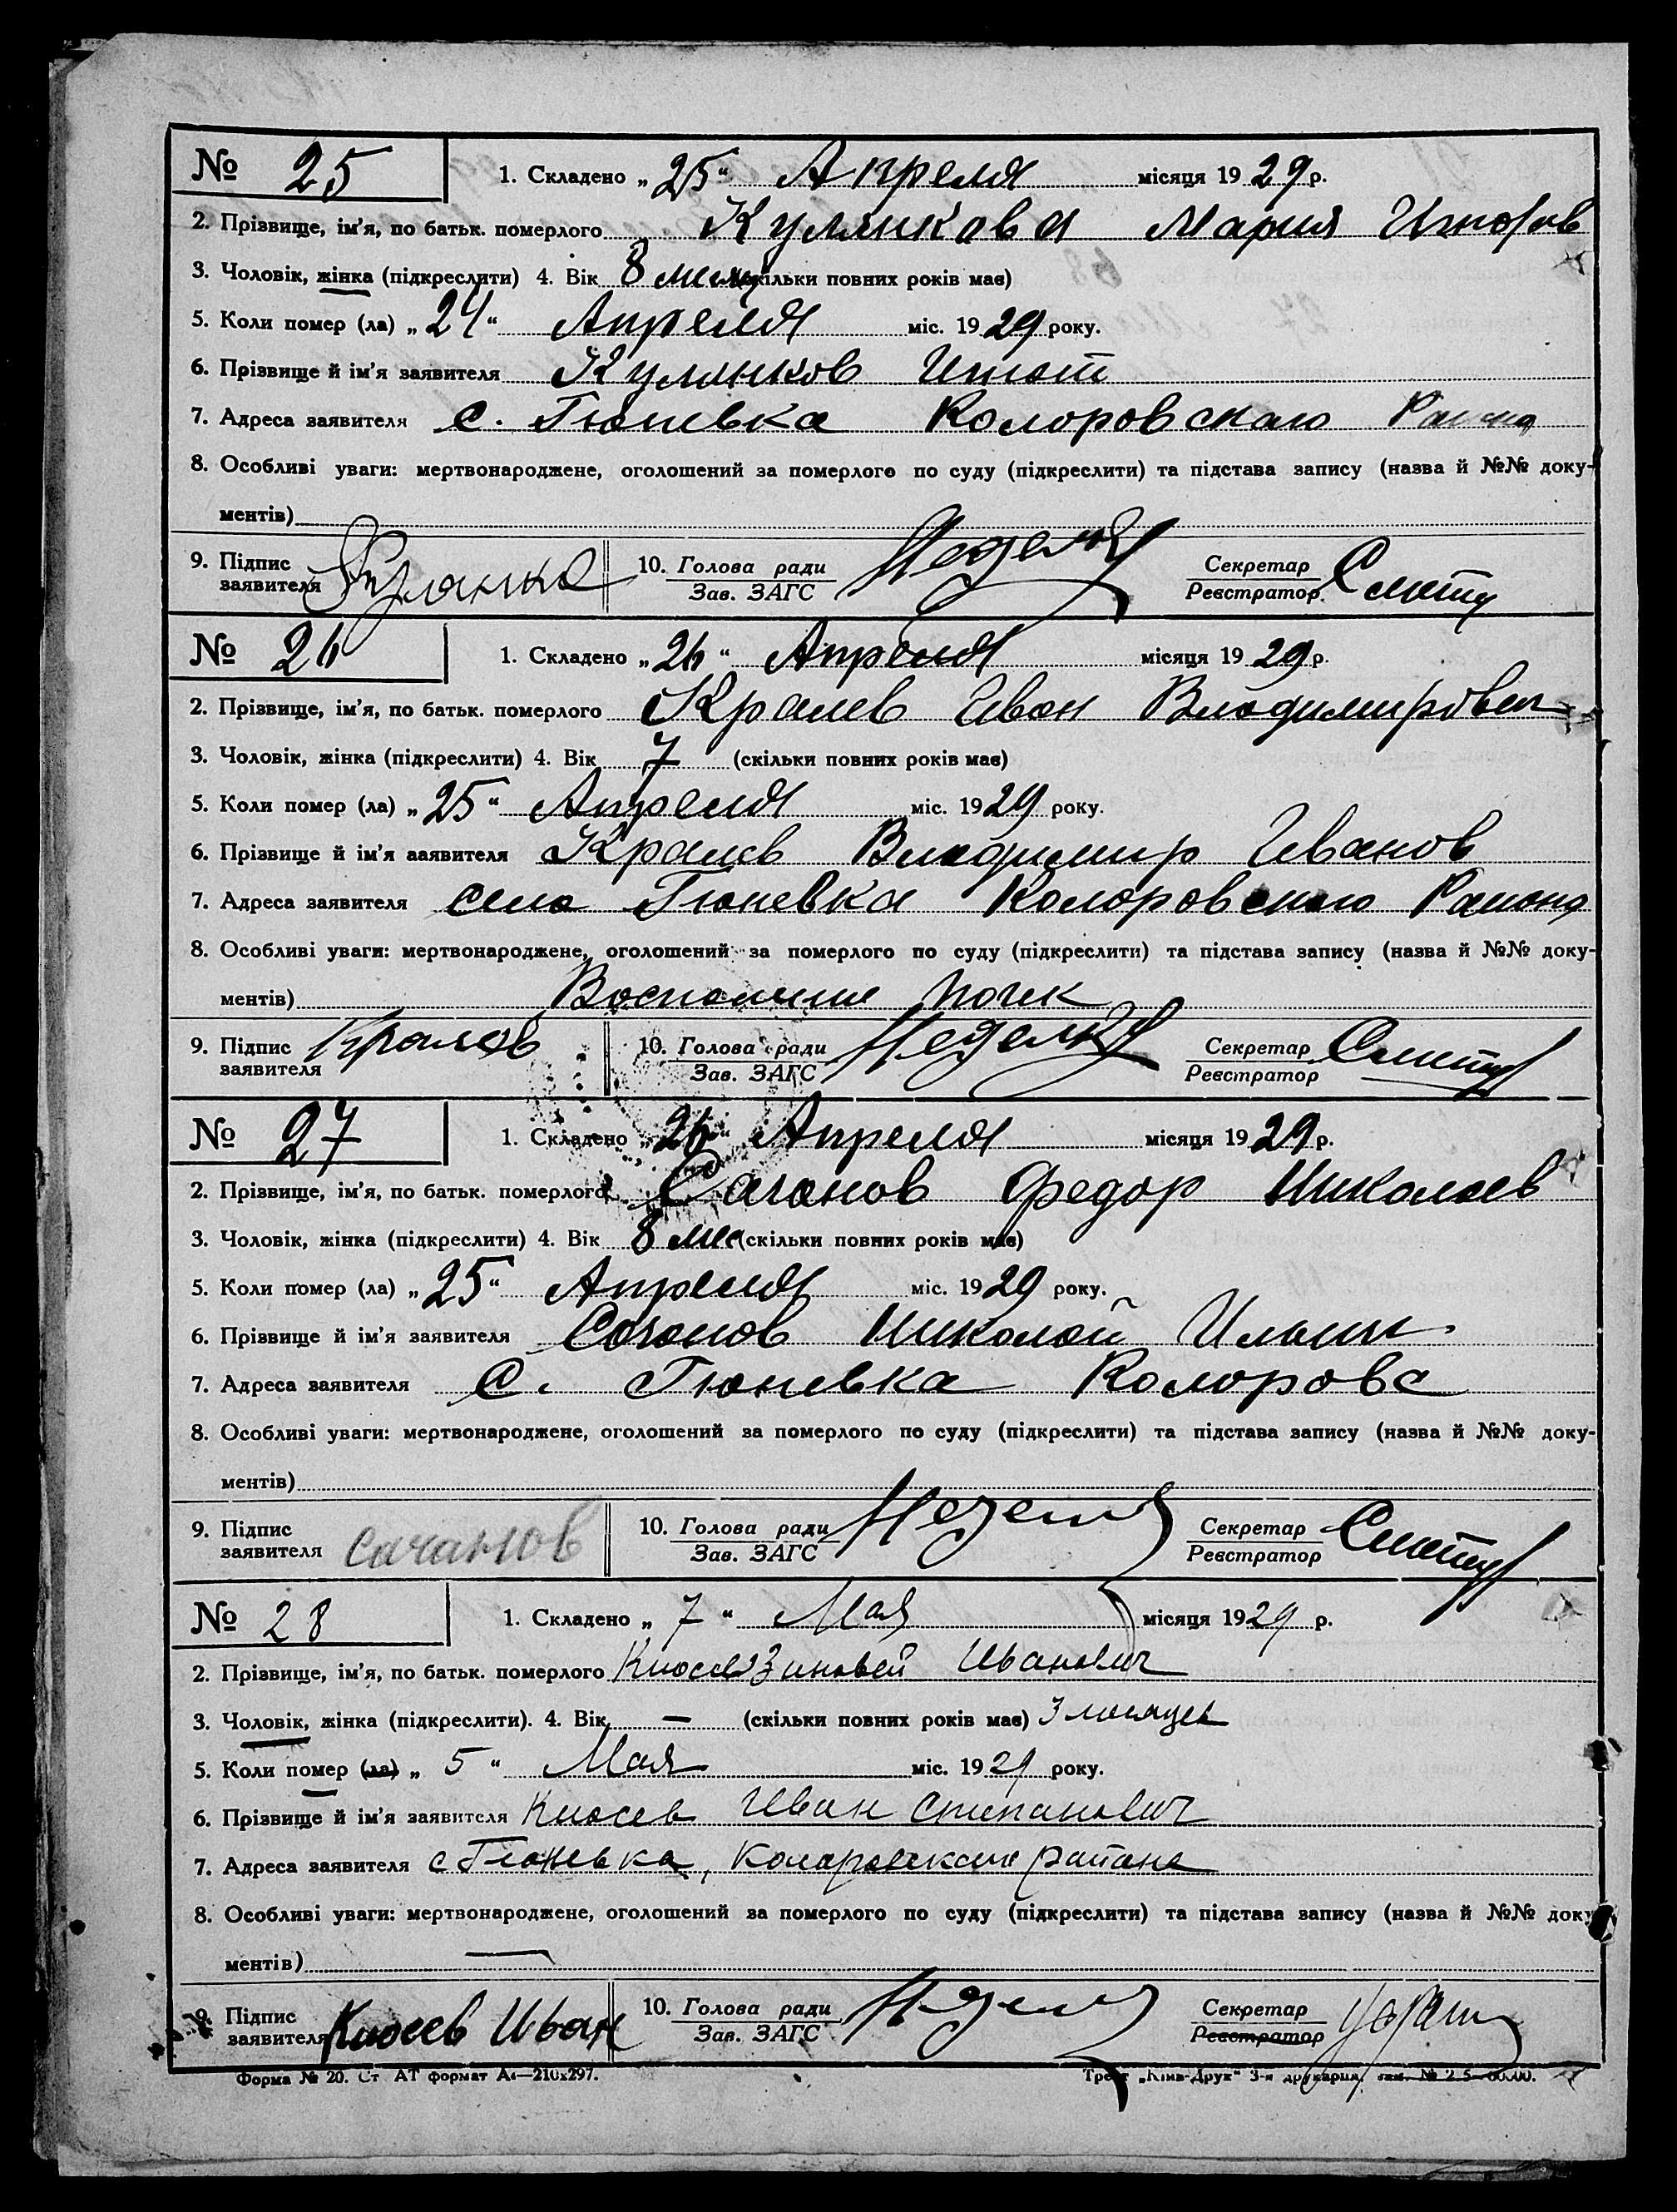 № 25 1. Складено „25“ Апреля місяця 1929 р.
2. Прізвище, ім'я, по батьк. померлого Кулинкова Мария Игнатов
3. Чоловік, жінка (підкреслити) 4. Вік 8 (скільки повних років має)
5. Коли помер (ла) „24“ Апреля міс. 1929 року.
6. Прізвище й ім'я заявителя Кулинков Игнат
7. Адреса заявителя с. Гюневка Коларовского Района
8. Особливі уваги: мертвонароджене, оголошений за померлого по суду (підкреслити) та підстава запису (назва й №№ доку-
ментів)
9. Підпис заявителя 10. Голова ради Зав. ЗАГС Секретар Реєстратор
№ 26 1. Складено „26“ Апреля місяця 1929 р.
2. Прізвище, ім'я, по батьк. померлого Кралев Иван Владимирович
3. Чоловік, жінка (підкреслити) 4. Вік 7 (скільки повних років має)
5. Коли помер (ла) „25“ Апреля міс. 1929 року.
6. Прізвище й ім'я заявителя Кралев Владимир Иванов
7. Адреса заявителя село Гюневка Коларовского Района
8. Особливі уваги: мертвонароджене, оголошений за померлого по суду (підкреслити) та підстава запису (назва й №№ доку-
ментів) Воспаление почек
9. Підпис заявителя Кралев 10. Голова ради Зав. ЗАГС Секретар Реєстратор
№ 27 1. Складено „26“ Апреля місяця 1929 р.
2. Прізвище, ім'я, по батьк. померлого Сачанов Федор Николаев
3. Чоловік, жінка (підкреслити) 4. Вік 8 мес (скільки повних років має)
5. Коли помер (ла) „25“ Апреля міс. 1929 року.
6. Прізвище й ім'я заявителя Сачанов Николай Ильич
7. Адреса заявителя с. Гюневка Коларовс
8. Особливі уваги: мертвонароджене, оголошений за померлого по суду (підкреслити) та підстава запису (назва й №№ доку-
ментів)
9. Підпис заявителя сачанов 10. Голова ради Зав. ЗАГС Секретар Реєстратор
№ 28 1. Складено „7“ Мая місяця 1929 р.
2. Прізвище, ім'я, по батьк. померлого Киосев Зиновей Иванович
3. Чоловік, жінка (підкреслити). 4. Вік — (скільки повних років має) 3 месяцев
5. Коли помер (ла) „5“ Мая міс. 1929 року.
6. Прізвище й ім'я заявителя Киосев Иван Степанович
7. Адреса заявителя с Гюневка, Коларовского района
8. Особливі уваги: мертвонароджене, оголошений за померлого по суду (підкреслити) та підстава запису (назва й №№ доку-
ментів) —
9. Підпис заявителя Киосев Иван 10. Голова ради Зав. ЗАГС Секретар Реєстратор
Форма № 20. Ст АТ формат А4—210x297. Трест „Київ-Друк“ 3-я друкарня,